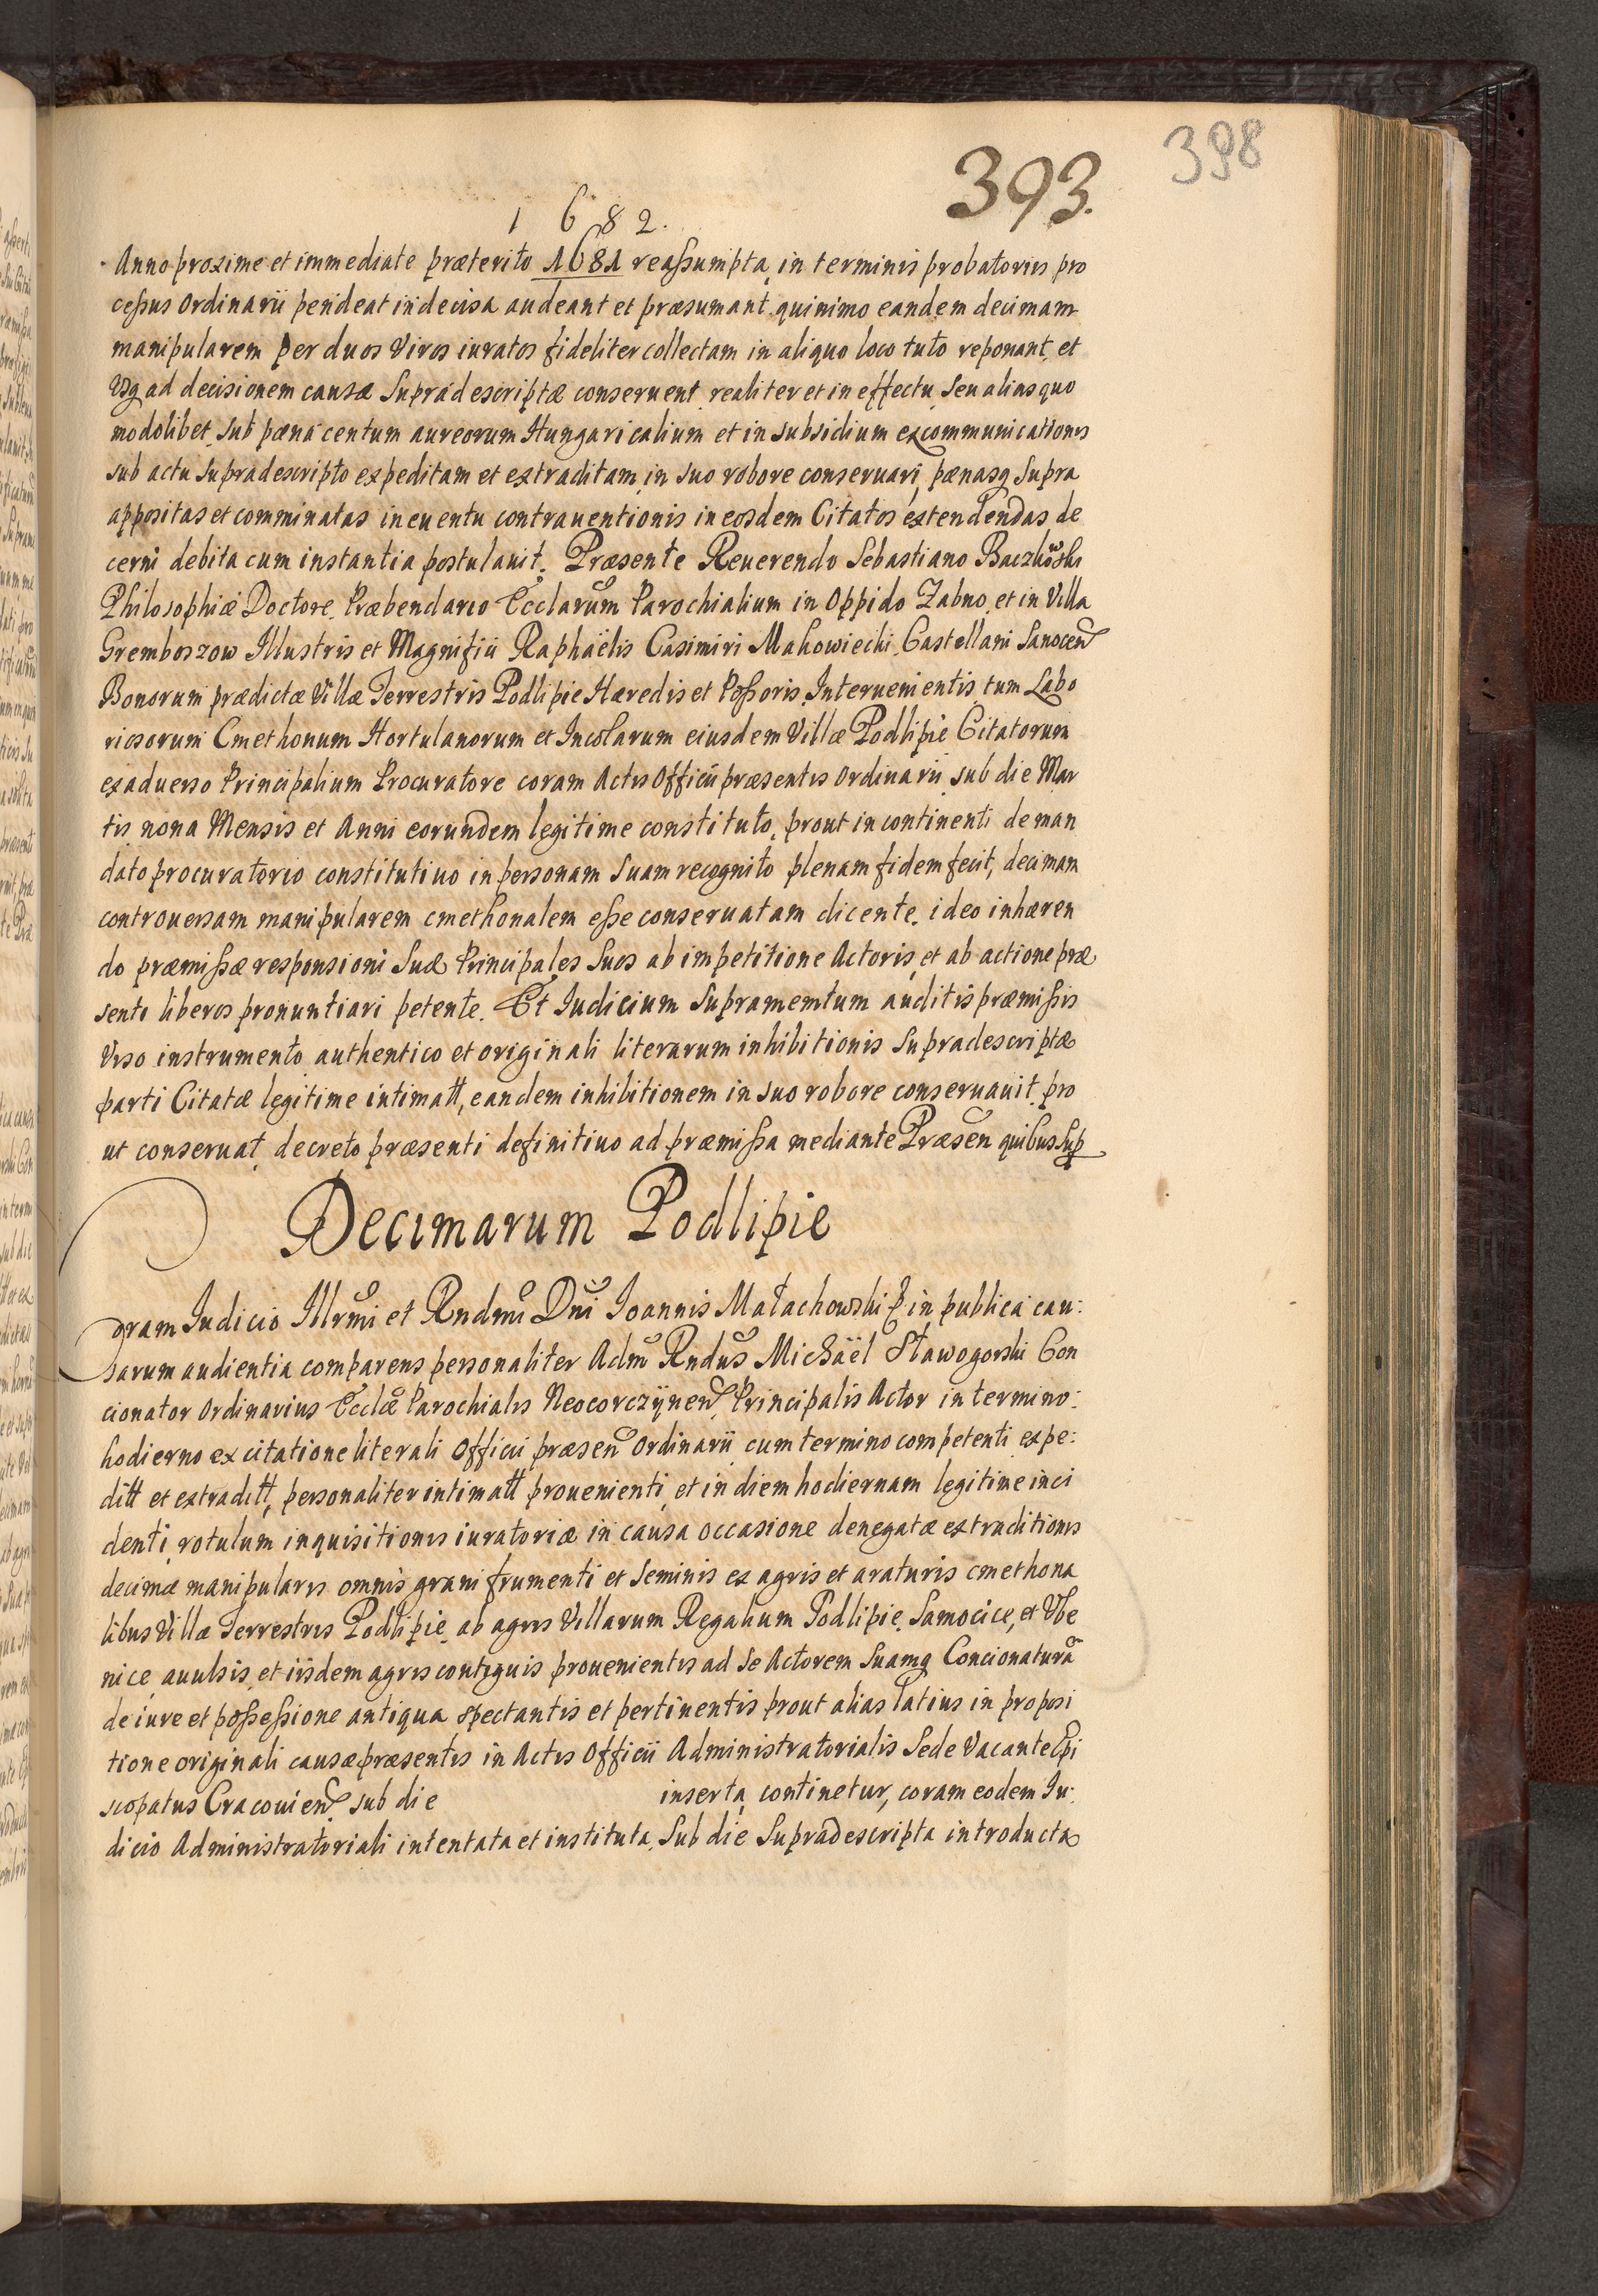 393.
398
1 6 8 2.
Anno proxime et immediate præterito 1681 reassumpta, in terminis probatoriis pro
cessus Ordinarii pendeat indecisa audeant et præsumant, quinimo eandem decimam
manipularem per duos Viros iuratos fideliter collectam in aliquo loco tuto reponant, et
Vsq ad decisionem causæ Supradescriptæ conseruent realiter et in effectu, Seu alias quo
modolibet, sub pæna centum aureorum Hungaricalium et in subsidium excommunicationis
sub actu supradescripto expeditam et extraditam, in suo robore conseruari, pænasq Supra
appositas et comminatas in euentu contrauentionis in eosdem Citatos extendendas de
cerni debita cum instantia postulauit. Præsente Reuerendo Sebastiano Baczkowski
Philosophiæ Doctore, Præbendario Ecclarum Parochialium in Oppido Zabno, et in Villa
Gremboszow Illustris et Magnifici Raphaëlis Casimiri Makowiecki, Castellani Sanocen
Bonorum prædictæ Villæ Terrestris Podlipie Hæredis et Possoris, Interuenientis, tum Labo
riosorum Cmethonum Hortulanorum et Incolarum eiusdem Villæ Podlipie Citatorum
ex aduerso Principalium Procuratore coram Actis Officii præsentis Ordinarii, sub die Mar
tis nona Mensis et Anni eorundem legitime constituto, prout in continenti de man
dato procuratorio constitutiuo in personam Suam recognito plenam fidem fecit, decimam
controuersam manipularem cmethonalem esse conseruatam dicente, ideo inhæren
do præmissæ responsioni Suæ Principales Suos ab impetitione Actoris, et ab actione præ
senti liberos pronuntiari petente. Et Iudicium Supramemtum auditis præmissis
Viso instrumento authentico et originali literarum inhibitionis Supradescriptæ
parti Citatæ legitime intimatt, eandem inhibitionem in suo robore conseruauit, pro
ut conseruat, decreto præsenti definitiuo ad præmissa mediante Præsen quibus Sup
Decimarum Podlipie
Coram Iudicio Illrmi et Rndmi Dni Ioannis Małachowski in publica cau:
sarum audientia comparens personaliter Adm Rndus Michaël Stawogorski Con
cionator Ordinarius Ecclæ Parochialis Neocorczÿnen, Principalis Actor in termino:
hodierno ex citatione literali Officii præsen Ordinarii cum termino competenti expe:
ditt et extraditt, personaliter intimatt prouenienti, et in diem hodiernam legitime inci
denti, rotulum inquisitionis iuratoriæ in causa occasione denegatæ extraditionis
decimæ manipularis omnis grani frumenti et seminis ex agris et araturis cmethona
libus Villæ Terrestris Podlipie, ab agris Villarum Regalium Podlipie, Samocice, et Vbe
nice auulsis, et iisdem agris contiguis prouenientis ad se Actorem Suamq Concionatura
de iure et possessione antiqua spectantis et pertinentis prout alias latius in proposi
tione originali causæ præsentis in Actis Officii Administratorialis Sede Vacante Epi
scopatus Cracouien sub die inserta continetur, coram eodem Iu:
dicio Administratoriali intentata et instituta, Sub die Supradescripta introducta